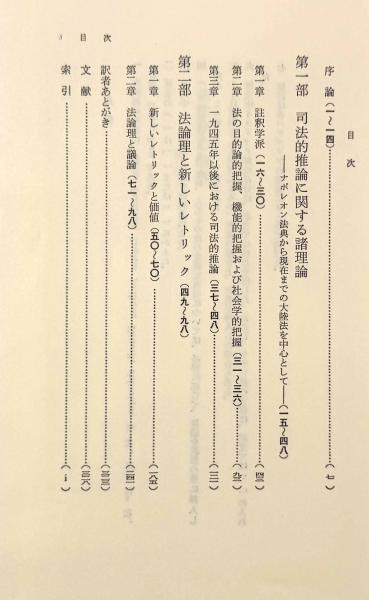 目次
序論(一〜一四)……(七)
第一部 司法的推論に関する諸理論
――ナポレオン法典から現在までの大陸法を中心として――(一五〜四八)
第一章 註釈学派(一六〜三〇)……(四三)
第二章 法の目的論的把握、機能的把握および社会学的把握(三一〜三六)……(九三)
第三章 一九四五年以後における司法的推論(三七〜四八)……(一三一)
第二部 法論理と新しいレトリック(四九〜九八)
第一章 新しいレトリックと価値(五〇〜七〇)……(一八五)
第二章 法論理と議論(七一〜九八)……(二四一)
訳者あとがき……
文献……
索引……(i)
3 目次